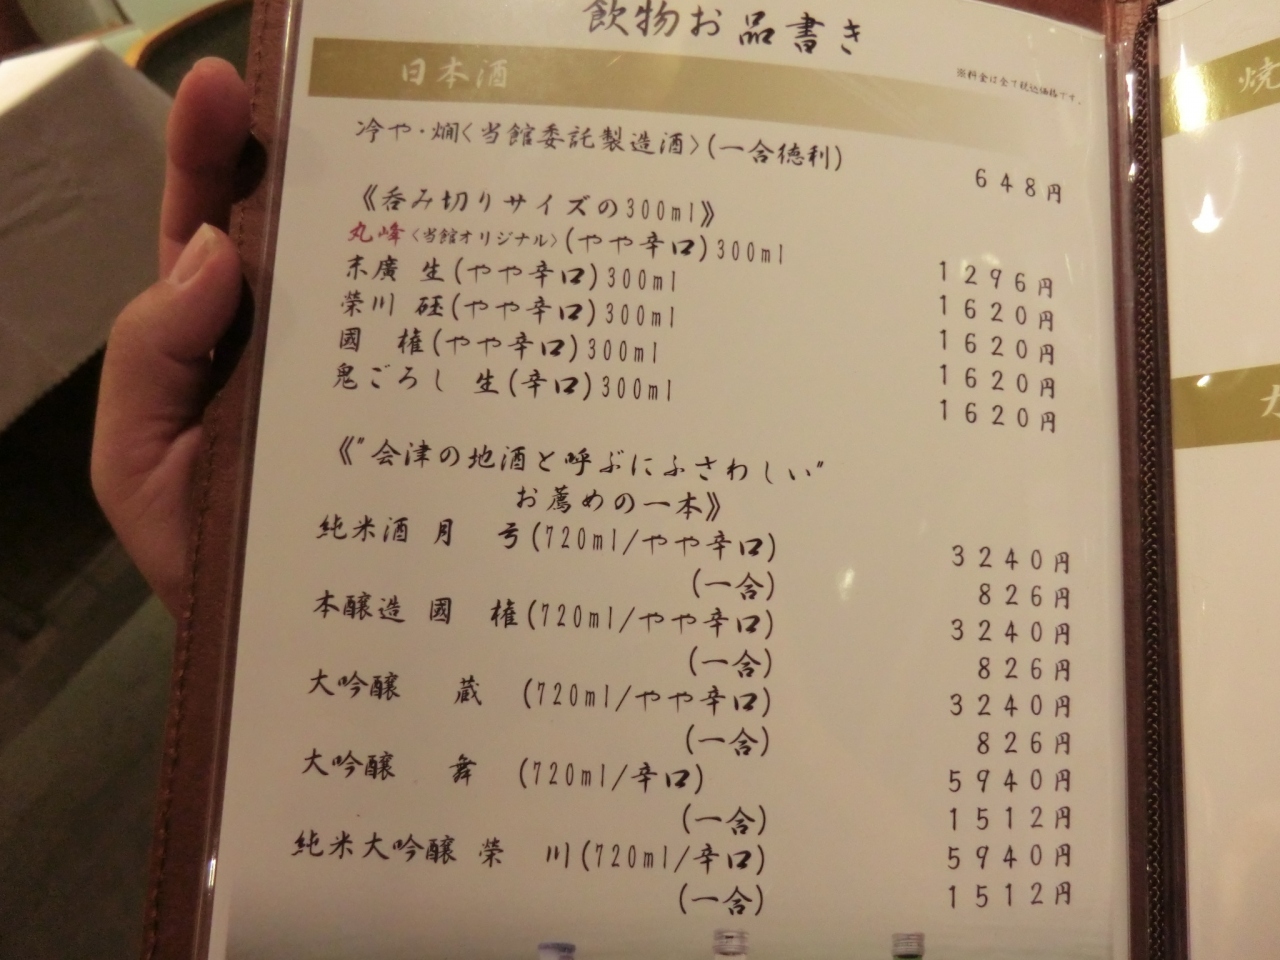 飲物お品書き
日本酒
※料金は全て税込価格です。
冷や・燗〈当館委託製造酒〉(一合徳利) 648円
《呑み切りサイズの300ml》
丸峰〈当館オリジナル〉(やや辛口)300ml 1296円
末廣 生(やや辛口)300ml 1620円
榮川 砡(やや辛口)300ml 1620円
國 権(やや辛口)300ml 1620円
鬼ごろし 生(辛口)300ml 1620円
《"会津の地酒と呼ぶにふさわしい"
お薦めの一本》
純米酒 月 弓(720ml/やや辛口) 3240円
(一合) 826円
本醸造 國 権(720ml/やや辛口) 3240円
(一合) 826円
大吟醸 蔵 (720ml/やや辛口) 3240円
(一合) 826円
大吟醸 舞 (720ml/辛口) 5940円
(一合) 1512円
純米大吟醸 榮 川(720ml/辛口) 5940円
(一合) 1512円
焼